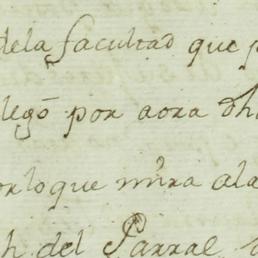 dela facultad que p
legō por aora dh
orloque mr̃a ala
h del Parral